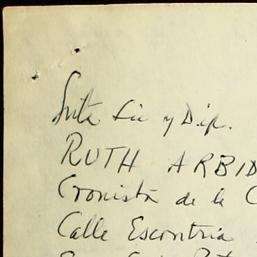 Srita Lic y Dip.
RUTH ARBID
Cronista de la C
Calle Escontria